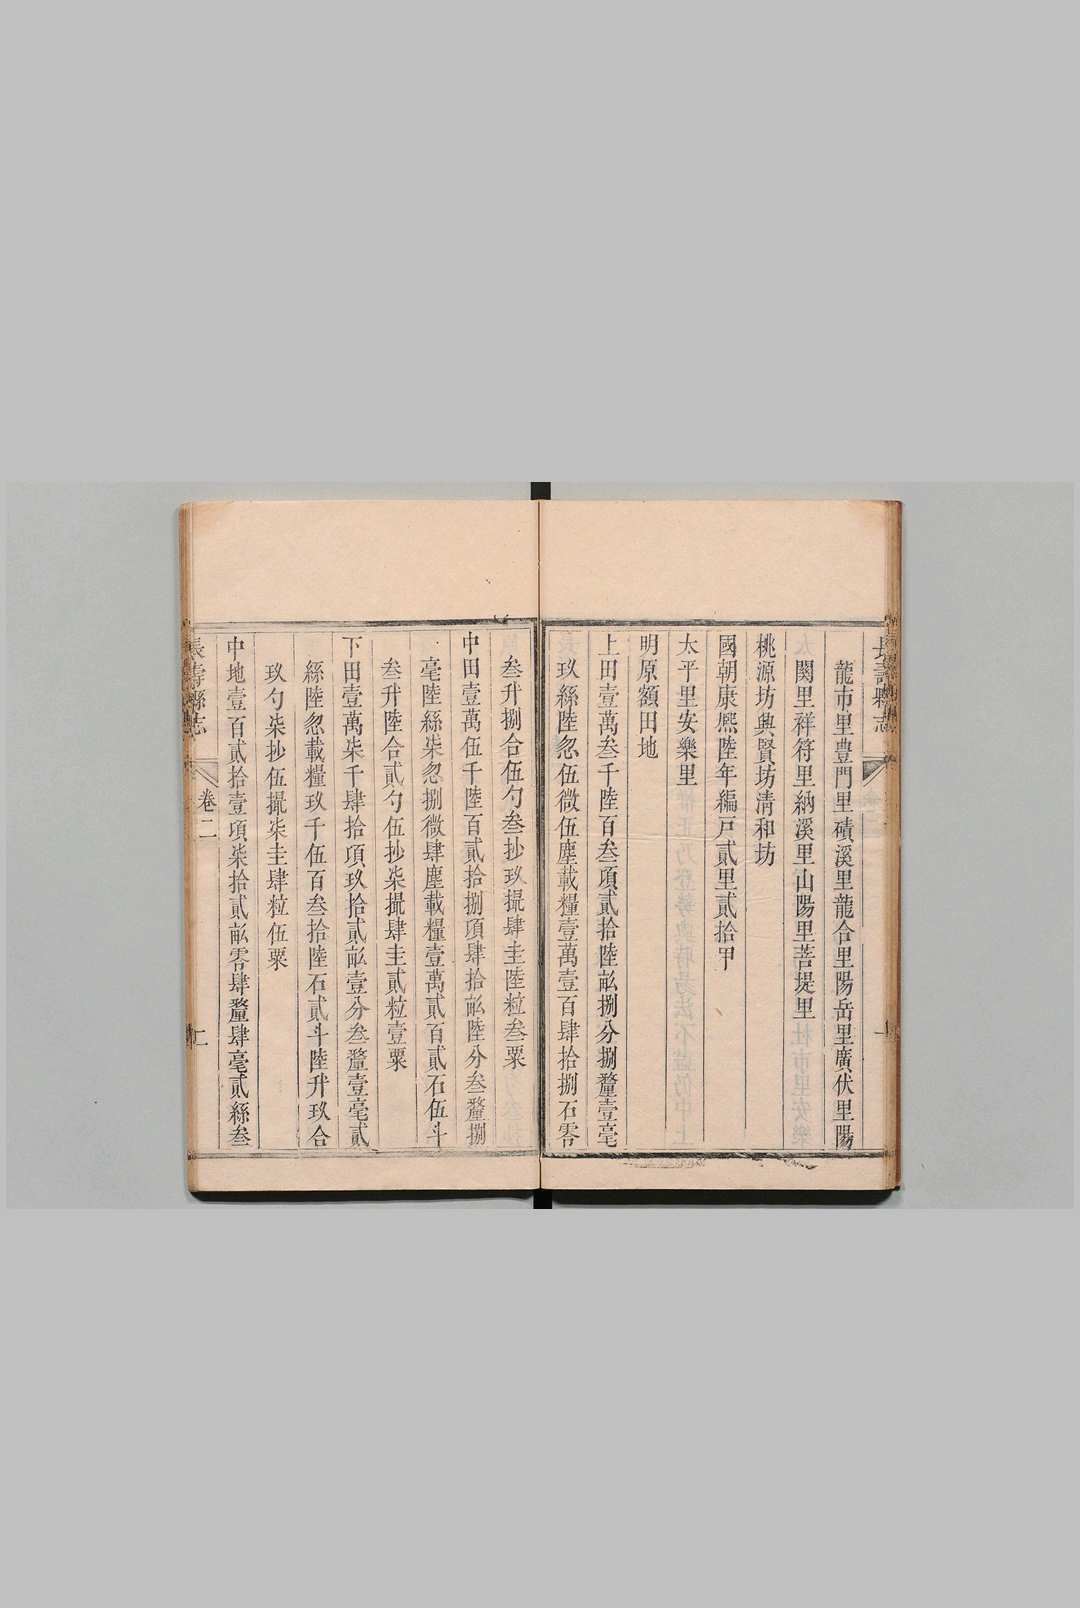 長壽縣志
龍市里豊門里磧溪里龍合里陽岳里廣伏里陽
関里祥符里納溪里山陽里菩提里
桃源坊興賢坊清和坊
國朝康熙陸年編戸貳里貳拾甲
太平里安樂里
明原額田地
上田壹萬叁千陸百叁項貳拾陸畆捌分捌釐壹毫
玖絲陸忽伍微伍塵載糧壹萬壹百肆拾捌石零
叁升捌合伍勺叁抄玖撮肆圭陸粒叁粟
中田壹萬伍千陸百貳拾捌項肆拾畆陸分叁釐捌
毫陸絲柒忽捌微肆塵載糧壹萬貳百貳石伍斗
叁升陸合貳勺伍抄柒撮肆圭貳粒壹粟
下田壹萬柒千肆拾項玖拾貳畆壹分叁釐壹毫貳
絲陸忽載糧玖千伍百叁拾陸石貳斗陸升玖合
玖勺柒抄伍撮柒圭肆粒伍粟
中地壹百貳拾壹項柒拾貳畆零肆釐肆毫貳絲叁
長壽縣志
卷二
二